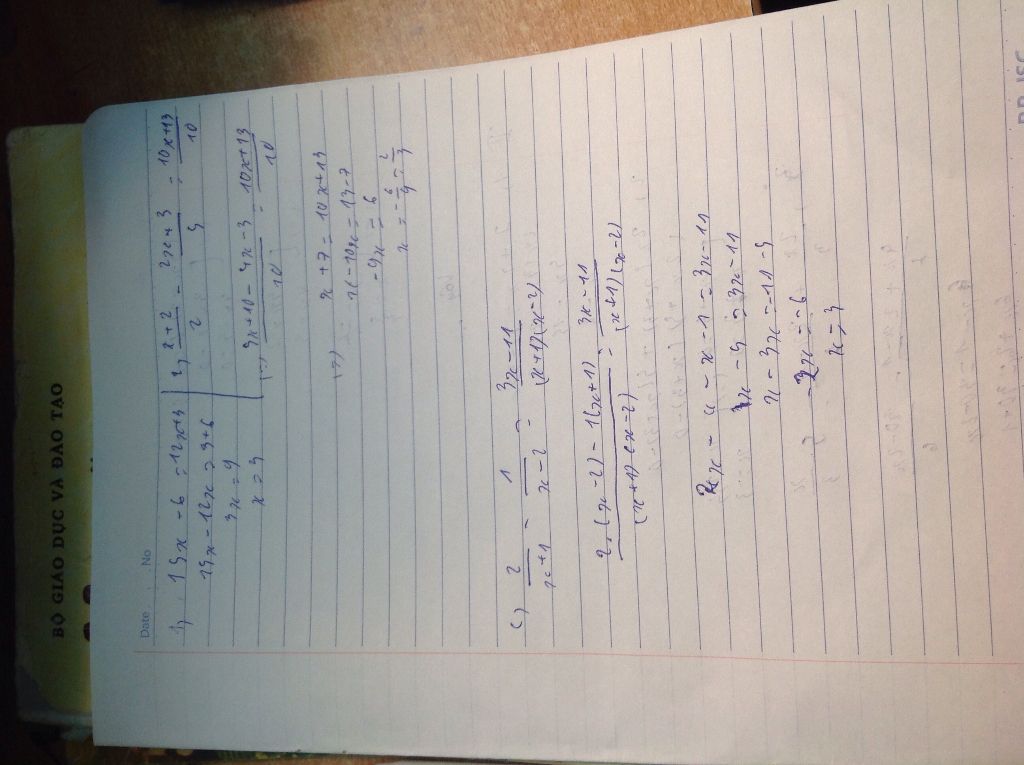 BỘ GIÁO DỤC VÀ ĐÀO TẠO
Date . No
1, 15x - 6 = 12x+3
15x - 12x = 3+6
3x = 9
x = 3
2, x+2/2 - 2x+3/5 = 10x+13/10
(=) 5x+10 - 4x - 3/10 = 10x+13/10
(=) x+7 = 10x+13
x - 10x = 13-7
-9x = 6
x = -6/9 = 2/3
c, 2/x+1 - 1/x-2 = 3x-11/(x+1)(x-2)
2.(x-2) - 1(x+1)/(x+1)(x-2) = 3x-11/(x+1)(x-2)
2x - 4 - x - 1 = 3x-11
x - 5 = 3x-11
x - 3x = -11+5
-2x = -6
x = 3